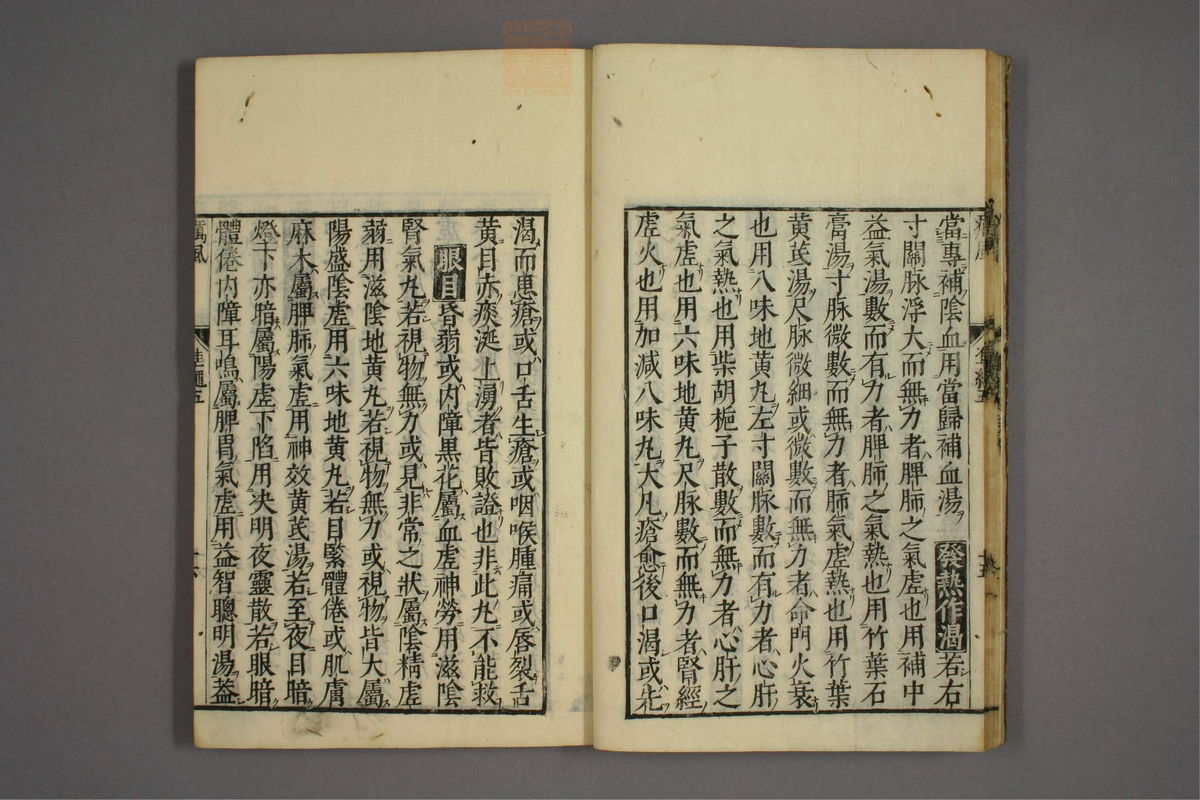 當專補陰血用當歸補血湯 發熱作渴若右
寸關脉浮大而無力者脾肺之氣虛也用補中
益氣湯數而有力者脾肺之氣熱也用竹葉石
膏湯寸脉微數而無力者肺氣虛熱也用竹葉
黄芪湯尺脉微細或微數而無力者命門火衰
也用八味地黄丸左寸關脉數而有力者心肝
之氣熱也用柴胡梔子散數而無力者心肝之
氣虛也用六味地黄丸尺脉數而無力者腎經
虛火也用加減八味丸大凡瘡愈後口渴或先
渴而患瘡或口舌生瘡或咽喉腫痛或唇裂舌
黄目赤痰涎上湧者皆敗證也非此丸不能救
眼目昏弱或内障黒花屬血虛神勞用滋陰
腎氣丸若視物無力或見非常之狀屬陰精虛
弱用滋陰地黄丸若視物無力或視物皆大屬
陽盛陰虛用六味地黄丸若目緊體倦或肌膚
麻木屬脾肺氣虛用神效黄芪湯若至夜目暗
燈下亦暗屬陽虛下陷用决明夜靈散若眼暗
體倦内障耳鳴屬脾胃氣虛用益智聰明湯益
癘風